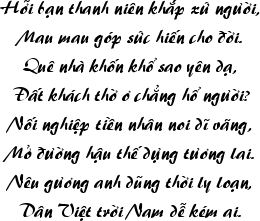 Hỡi bạn thanh niên khắp xứ người,
Mau mau góp sức hiến cho đời.
Quê nhà khốn khổ sao yên dạ,
Đất khách thờ ơ chẳng hổ ngươi?
Nối nghiệp tiền nhân noi dĩ vãng,
Mở đường hậu thế dựng tương lai.
Nêu gương anh dũng thời ly loạn,
Dân Việt trời Nam dễ kém ai.